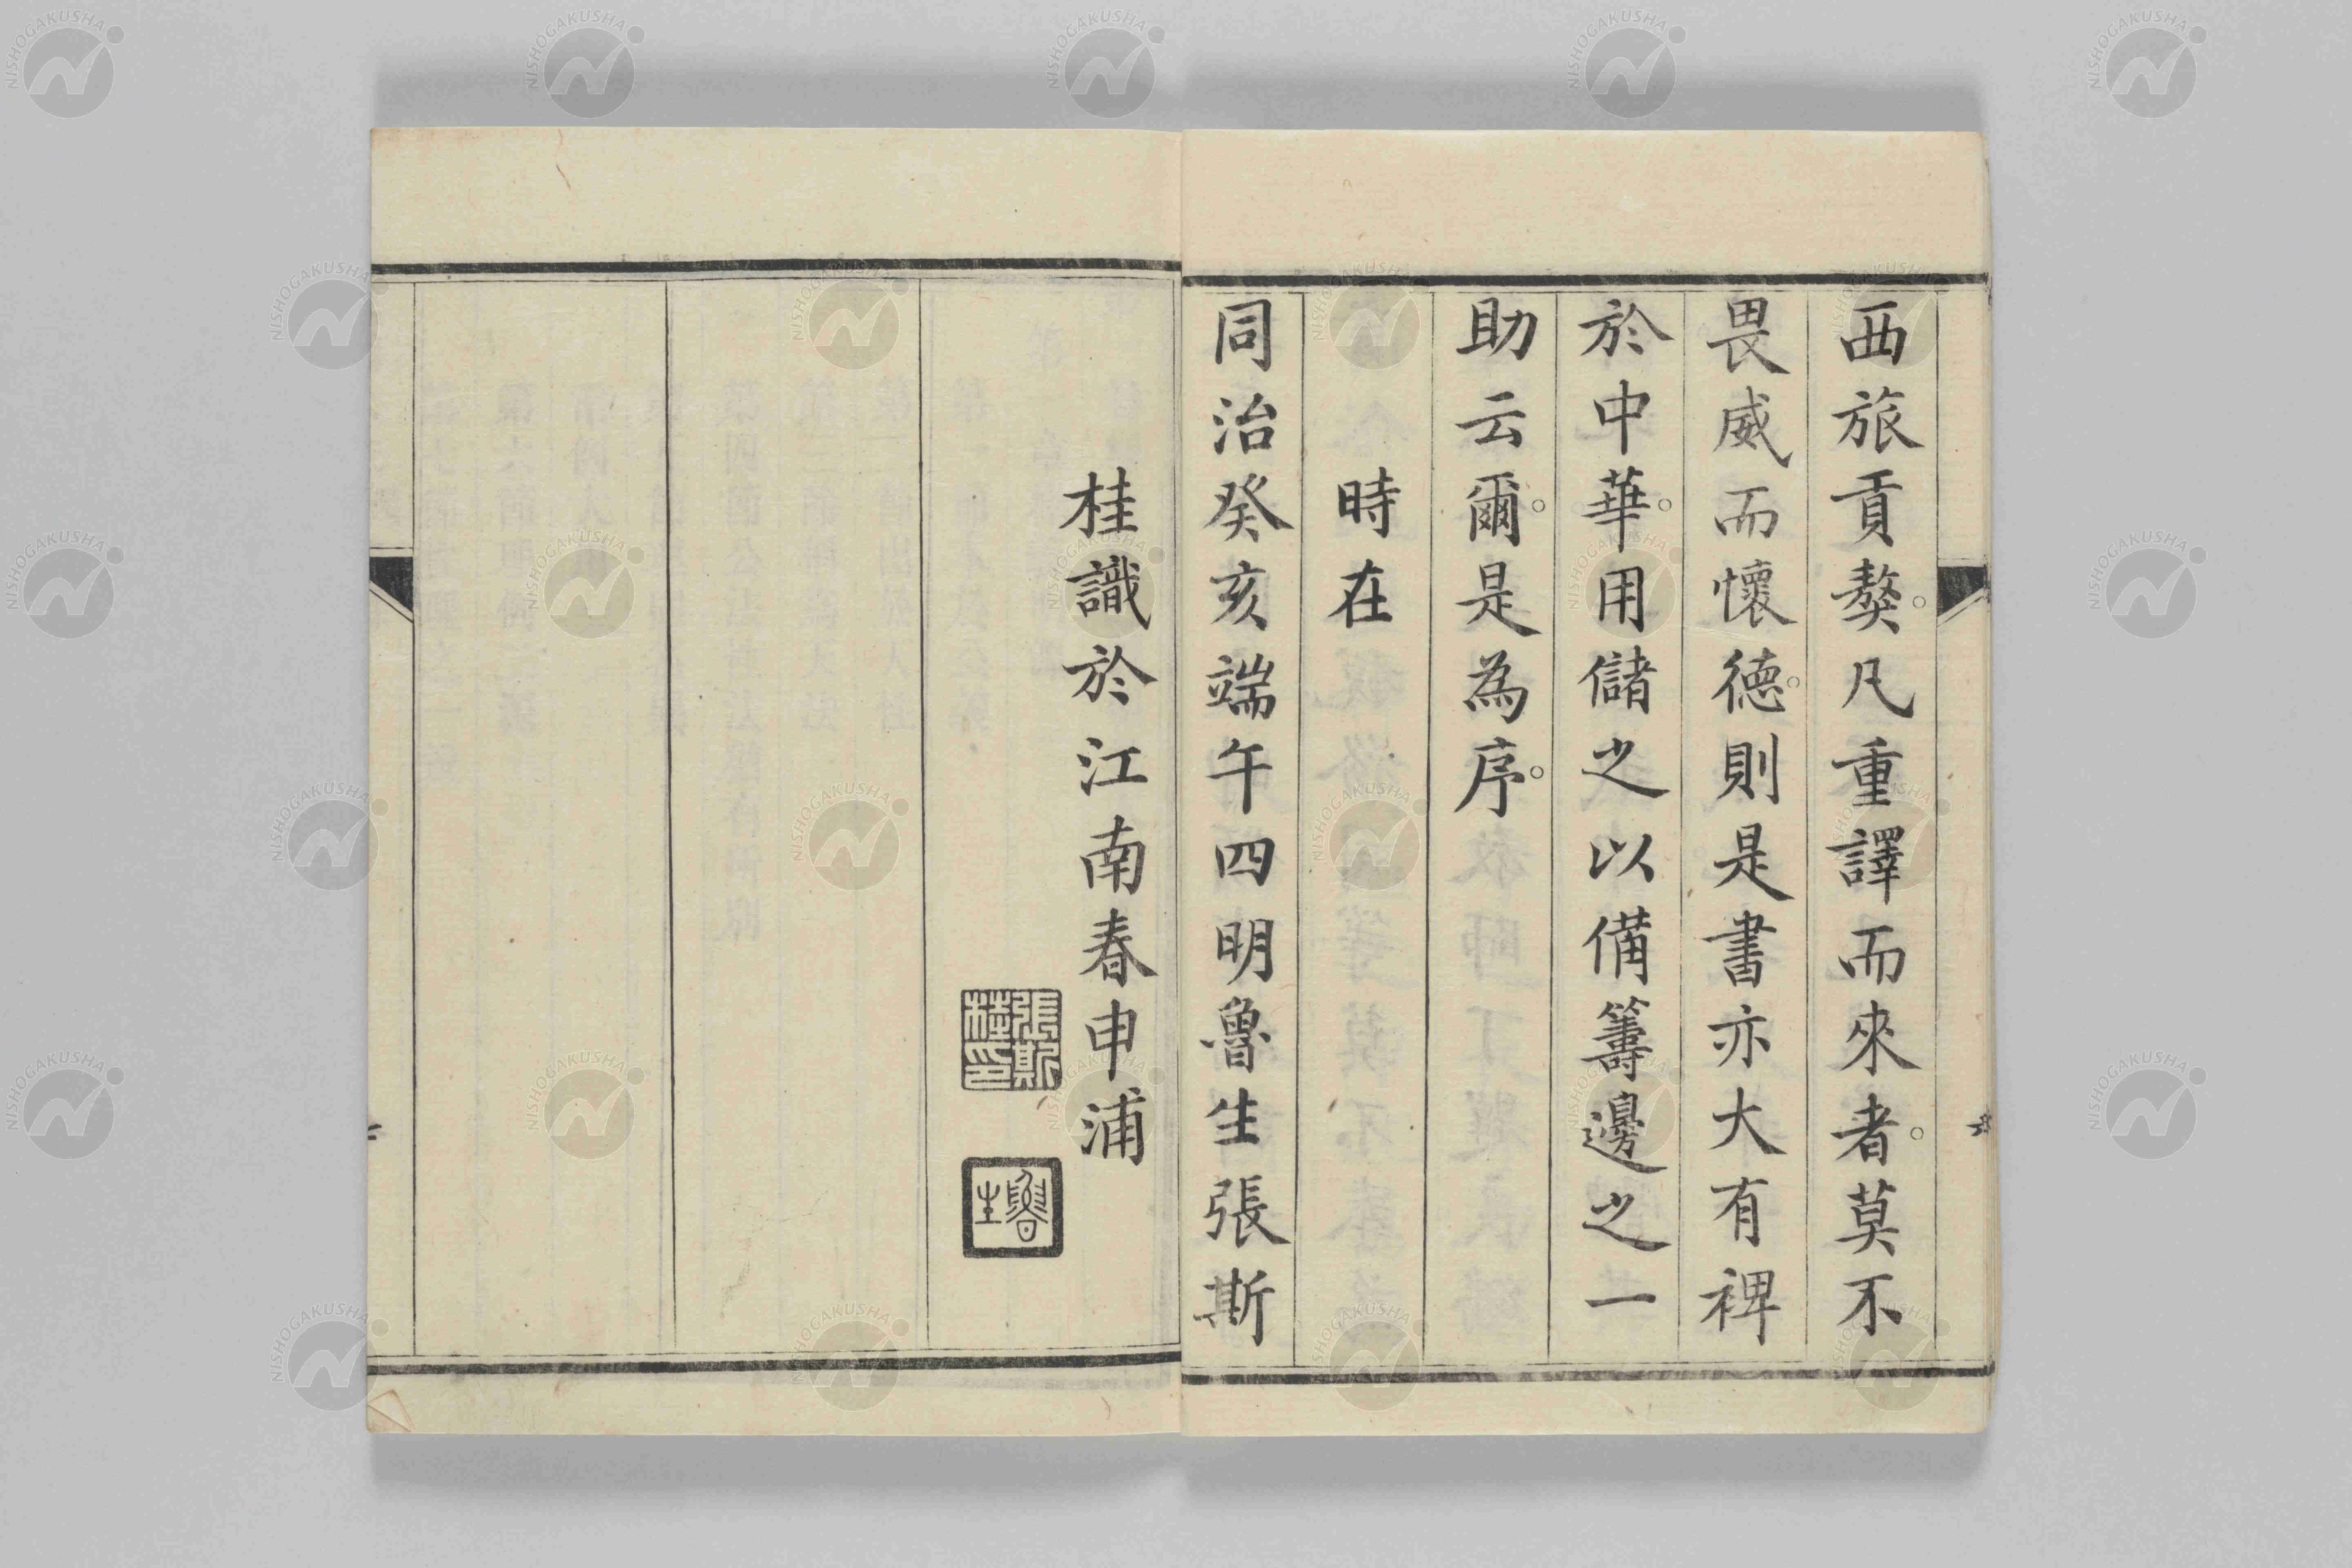 西旅貢獒。凡重譯而來者。莫不
畏威而懷德。則是書亦大有裨
於中華。用儲之以備籌邊之一
助云爾。是為序。
時在
同治癸亥端午四明魯生張斯
桂識於江南春申浦
張斯桂印
魯生
NISHOGAKUSHA